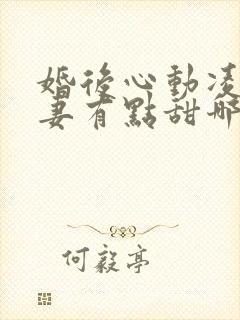 婚後心動凌
妻有點甜哪
何毅亭